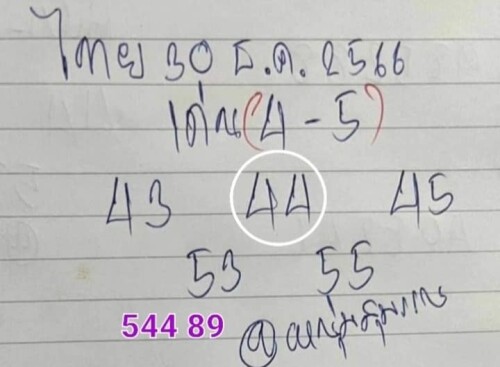 ไทย 30 ธ.ค. 2566
เด่น(4-5)
43 44 45
53 55
544 89